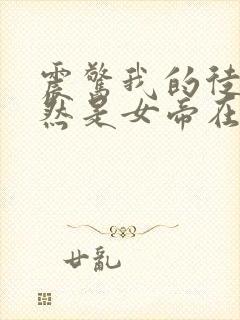 震惊我的徒
然是女帝在
廿乱